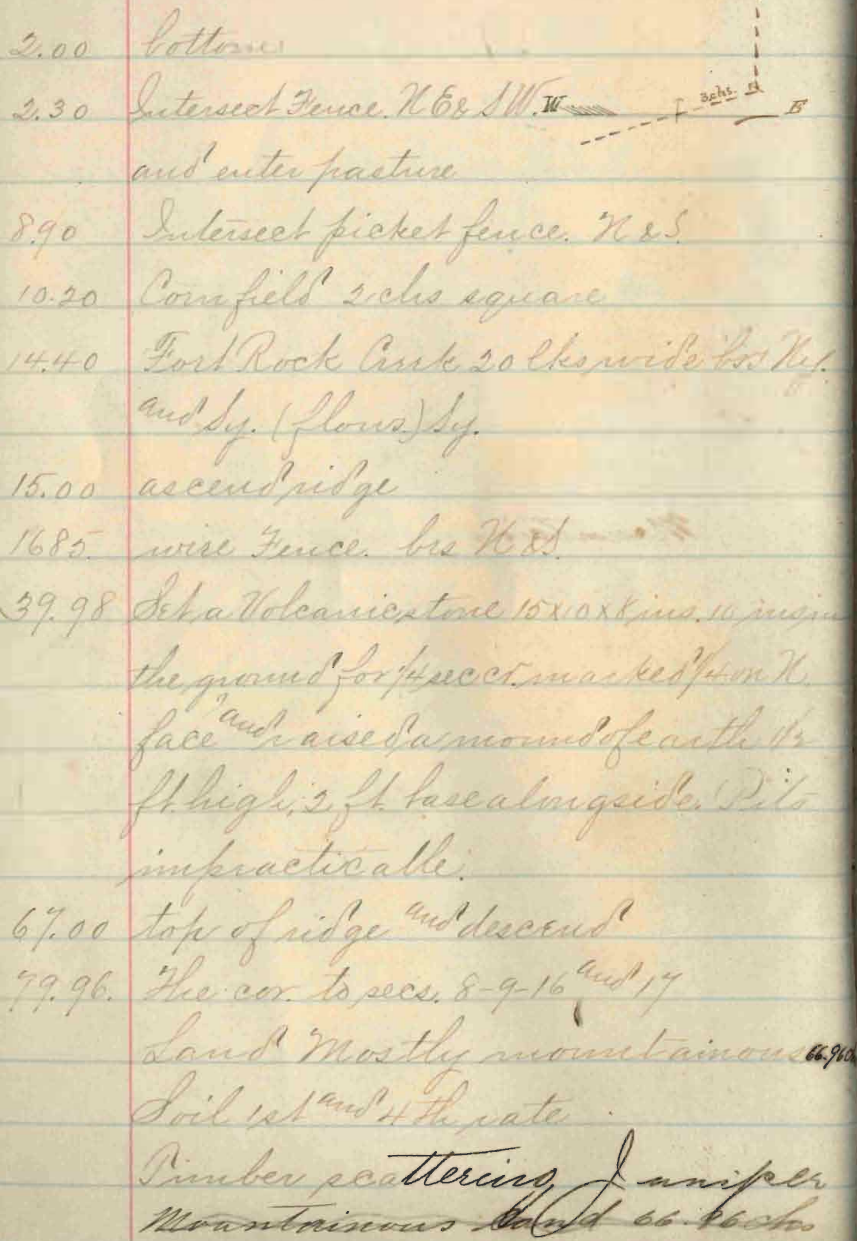 2.00 bottom
2.30 Intersect Fence. N E & S W. W 3 chs. N E
and enter pasture
8.90 Intersect picket fence. N & S.
10.20 Corn field 2 chs square
14.40 Fort Rock Creek 20 lks wide brs Ny.
and Sy. (flows) Sy.
15.00 ascend ridge
16.85 wire Fence. brs N & S.
39.98 Set a Volcanic stone 15 x 10 x 8 ins. 10 ins in
the ground for 1/4 sec cr. marked 1/4 on N.
face and raised a mound of earth 1 1/2
ft. high, 2 ft. base alongside. Pits
impracticable.
67.00 top of ridge and descend
79.96. The cor. to secs. 8-9-16 and 17
Land Mostly mountainous 66.96
Soil 1st and 4th rate
Timber scattering Juniper
Mountainous land 66.96 chs